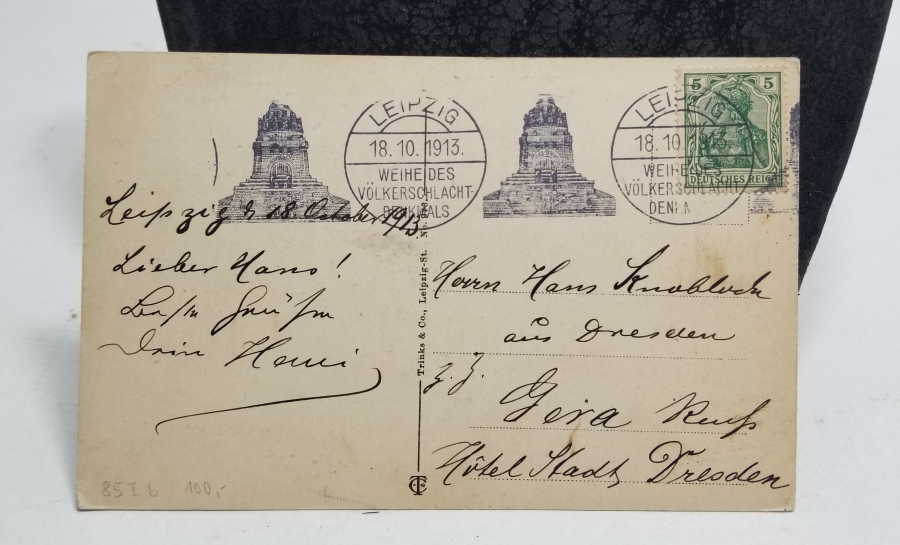 LEIPZIG
18. 10. 1913.
WEIHE DES
VÖLKERSCHLACHT-
DENKMALS
LEIPZIG
18. 10. 1913.
WEIHE DES
VÖLKERSCHLACHT-
DENKMA
5 5
DEUTSCHES REICH
Leipzig d 18. October 1913.
Lieber Hans!
Besten Grüßen
Dein Henri
Trinks & Co., Leipzig-St. No.
Herrn Hans Knobloch
aus Dresden
z. Z.
Gera Reuß
Hôtel Stadt Dresden
85 I b 100,-